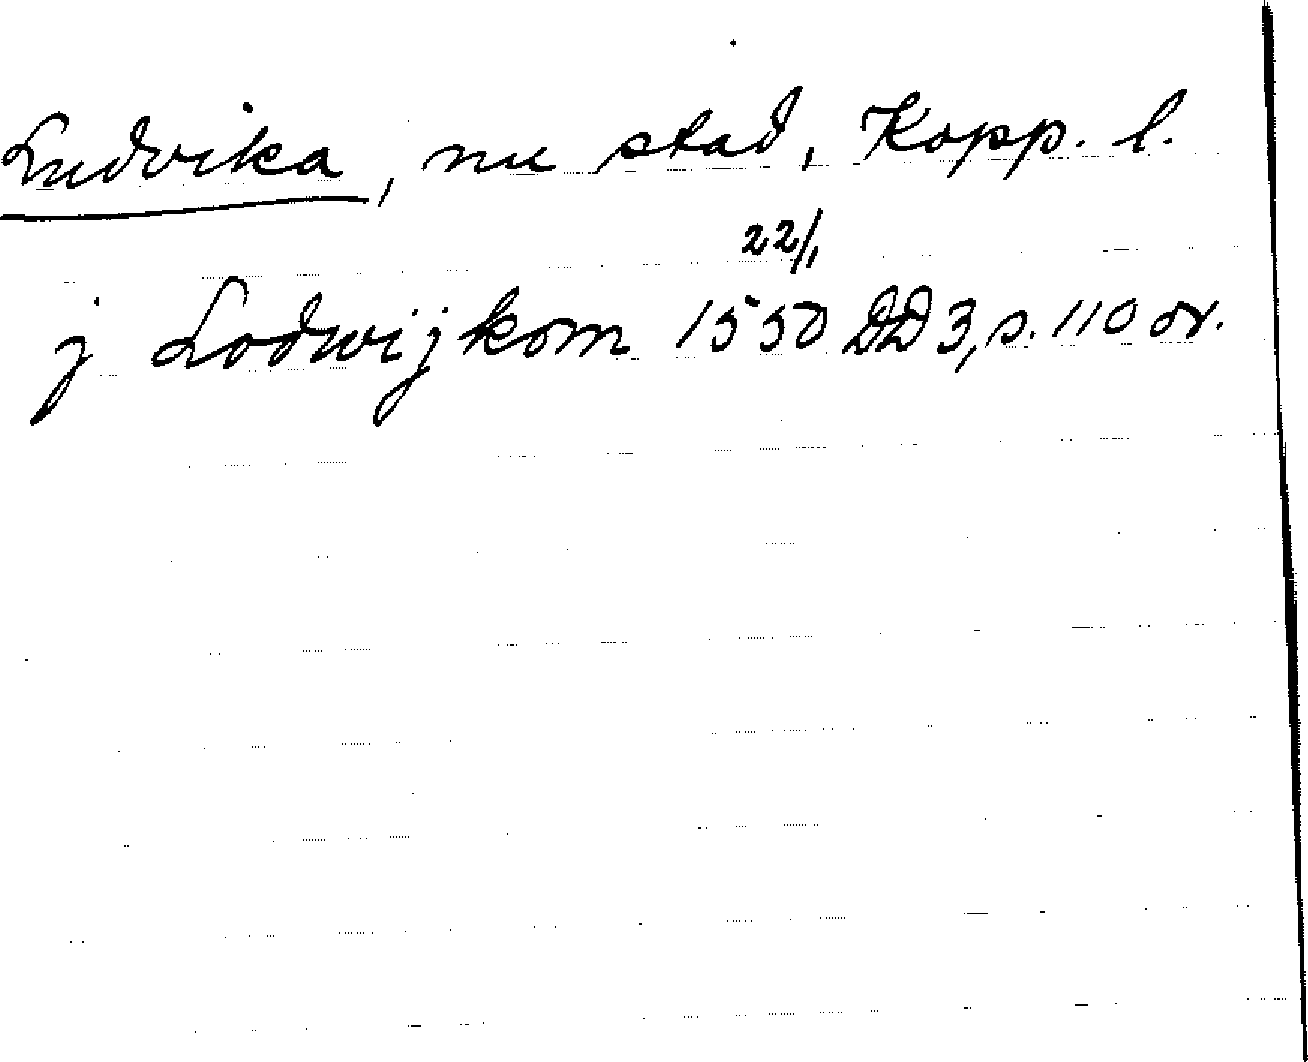 Ludvika, nu stad, Kopp. l.
22/1
j Lodwijkom 1550 DD 3, s. 110 or.